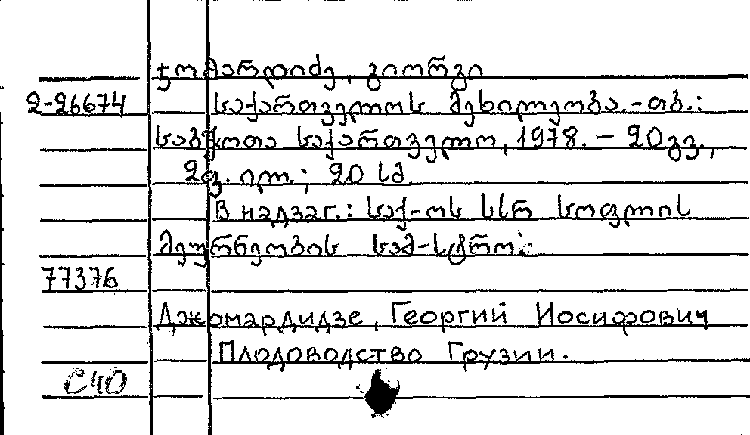 ჯომარდიძე, გიორგი
2-26674 საქართველოს მეხილეობა.-თბ.:
საბჭოთა საქართველო, 1978. – 20გვ.,
2ფ. ილ.; 20 სმ
В надзаг.: საქ-ოს სსრ სოფლის
მეურნეობის სამ-სტრო.
77376
Джомардидзе, Георгий Иосифович
Плодоводство Грузии.
С40